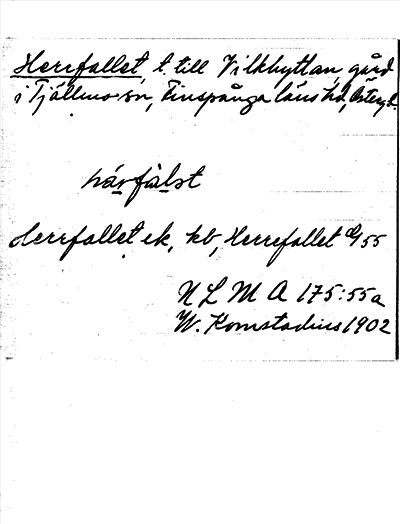 Herrfallet, t. till Vilkhyttan, gård
i Tjällmo sn, Finspånga läns hd, Österg.
hárfàlet
Herrfallet ek, kb, Herrefallet 55
N L M A 175:55a
W. Komstadius 1902